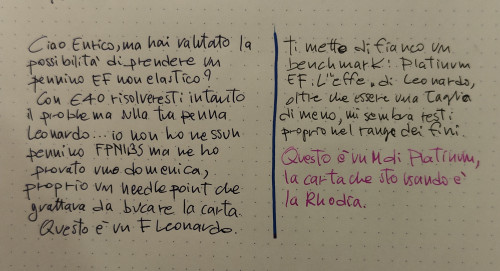 Ciao Enrico, ma hai valutato la
possibilità di prendere un
pennino EF non elastico?
Con €40 risolveresti intanto
il problema sulla tua penna
Leonardo... io non ho nessun
pennino FPNIBS ma ne ho
provato uno domenica,
proprio un needlepoint che
grattava da bucare la carta.
Questo è un F Leonardo.
ti metto di fianco un
benchmark: Platinum
EF: L'"effe" di Leonardo,
oltre che essere una taglia
di meno, mi sembra resti
proprio nel range dei fini.
Questo è un M di Platinum,
la carta che sto usando è
la Rhodia.